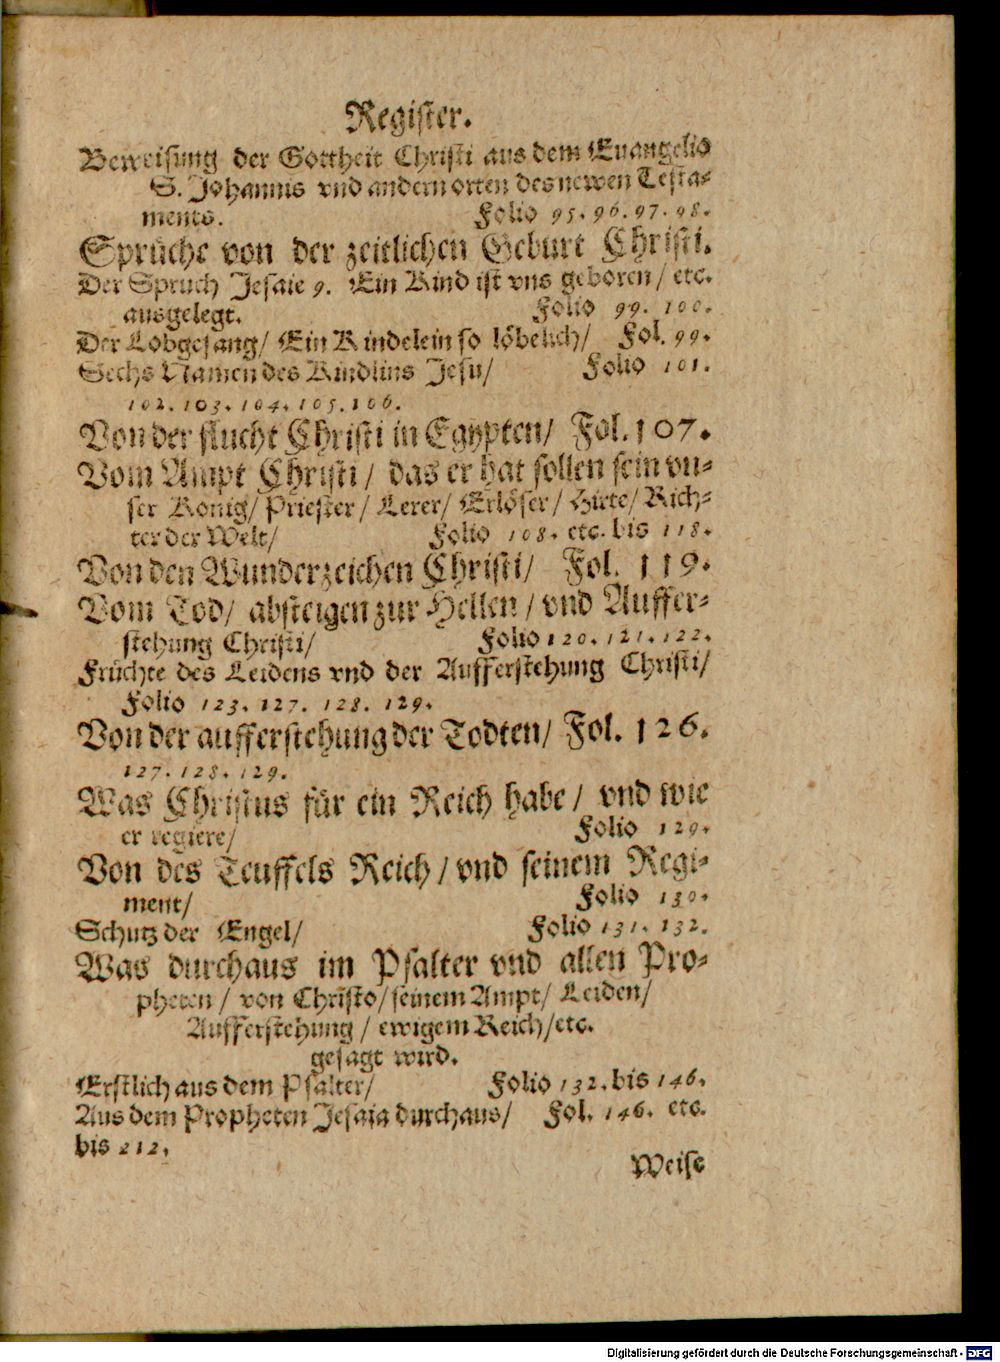 Register.
Beweisung der Gottheit Christi aus dem Euangelio
S. Johannis vnd andern orten des newen Testa-
ments. Folio 95. 96. 97. 98.
Sprüche von der zeitlichen Geburt Christi.
Der Spruch Jesaie 9. Ein Kind ist vns geboren / etc.
ausgelegt. Folio 99. 100.
Der Lobgesang / Ein Kindelein so löbelich / Fol. 99.
Sechs Namen des Kindlins Jesu / Folio 101.
102. 103. 104. 105. 106.
Von der flucht Christi in Egypten / Fol. 107.
Vom Ampt Christi / das er hat sollen sein vn-
ser König / Priester / Lerer / Erlöser / Hirte / Rich-
ter der Welt / Folio 108. etc. bis 118.
Von den Wunderzeichen Christi / Fol. 119.
Vom Tod / absteigen zur Hellen / vnd Auffer-
stehung Christi / Folio 120. 121. 122.
Früchte des Leidens vnd der Aufferstehung Christi /
Folio 123. 127. 128. 129.
Von der aufferstehung der Todten / Fol. 126.
127. 128. 129.
Was Christus für ein Reich habe / vnd wie
er regiere / Folio 129.
Von des Teuffels Reich / vnd seinem Regi-
ment / Folio 130.
Schutz der Engel / Folio 131. 132.
Was durchaus im Psalter vnd allen Pro-
pheten / von Christo / seinem Ampt / Leiden /
Aufferstehung / ewigem Reich / etc.
gesagt wird.
Erstlich aus dem Psalter / Folio 132. bis 146.
Aus dem Propheten Jesaia durchaus / Fol. 146. etc.
bis 212.
Weise
Digitalisierung gefördert durch die Deutsche Forschungsgemeinschaft - DFG